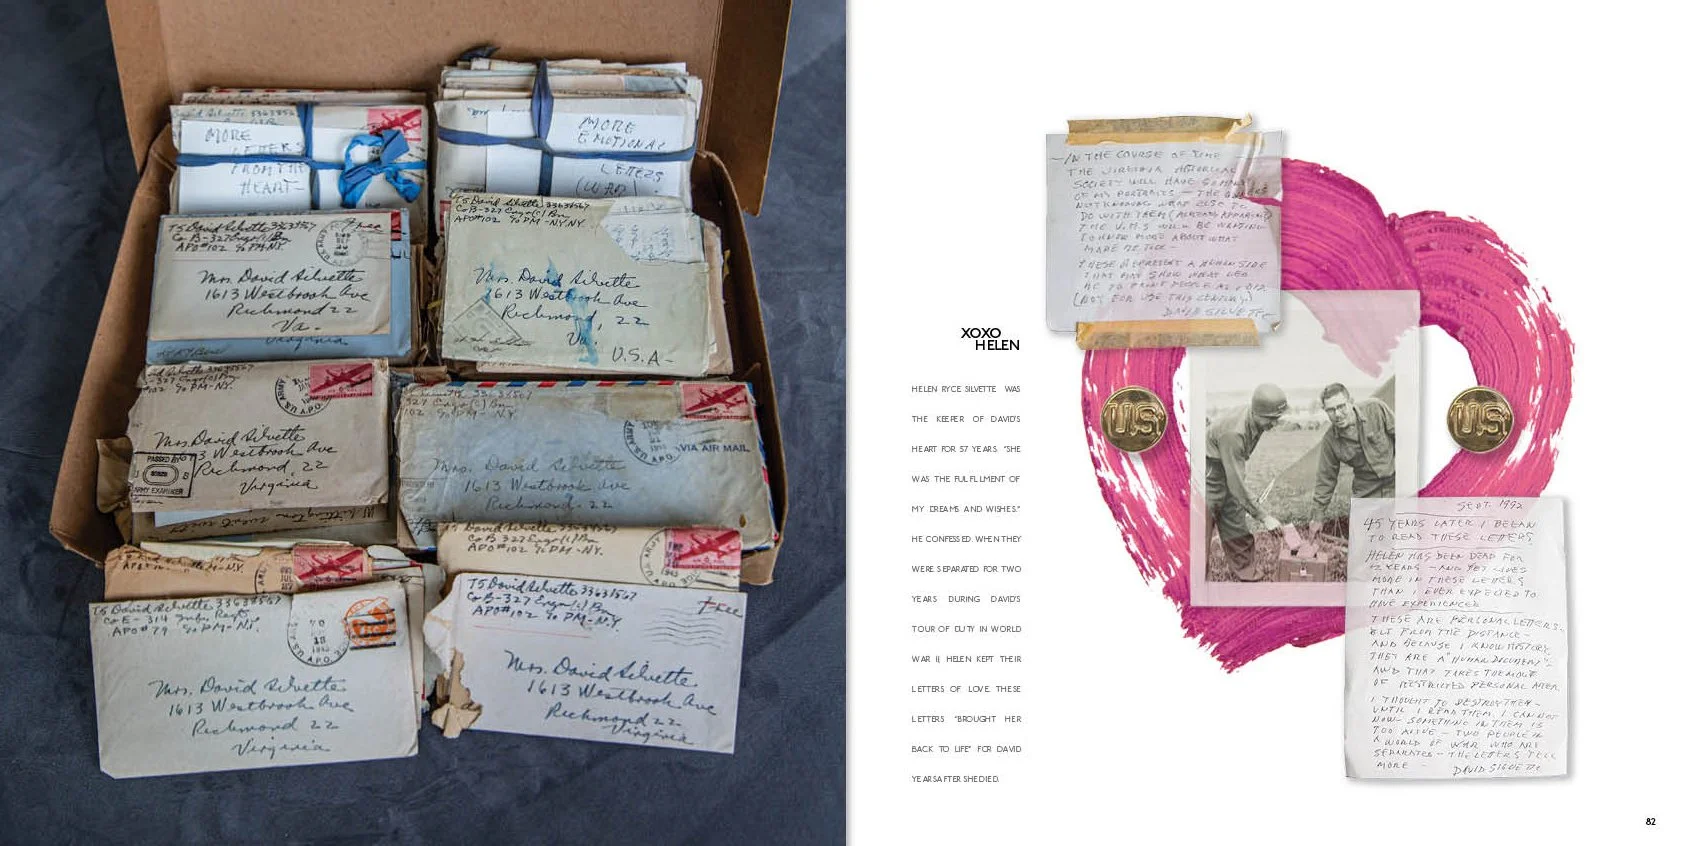 MORE
LETTERS
FROM THE
HEART-
MORE
EMOTIONAL
LETTERS
(WAR)
T5 David Silvette 33638567
Co B-327 Engr (c) Bn
APO#102 % PM-NY.
Free
Mrs. David Silvette
1613 Westbrook Ave
Richmond 22
Va.
Virginia
T5 David Silvette 33638567
Co B-327 Engr (c) Bn
APO#102 % PM-NY NY.
Mrs. David Silvette
1613 Westbrook Ave
Richmond, 22
Va.
U.S.A-
327 Engr (c) Bn
102 % PM-NY.
U.S. ARMY
A.P.O.
Mrs. David Silvette
Westbrook Ave
Richmond, 22
Virginia
PASSED BY
ARMY EXAMINER
327 Engr (c) Bn
102 % PM-N.Y.
VIA AIR MAIL
Mrs. David Silvette
1613 Westbrook Ave
Richmond 22
T5 David Silvette
Co B 327 Engr (c) Bn
APO#102 % PM-NY.
T5 David Silvette 33638567
Co E- 314 Infn. Regt
APO#79 % PM-NY.
Mrs. David Silvette
1613 Westbrook Ave
Richmond 22
Virginia
T5 David Silvette 33638567
Co B-327 Engr (c) Bn
APO#102 % PM-NY.
Free
Mrs. David Silvette
1613 Westbrook Ave
Richmond 22
Virginia
XOXO
HELEN
HELEN RYCE SILVETTE WAS
THE KEEPER OF DAVID'S
HEART FOR 57 YEARS. "SHE
WAS THE FULFILLMENT OF
MY DREAMS AND WISHES."
HE CONFESSED. WHEN THEY
WERE SEPARATED FOR TWO
YEARS DURING DAVID'S
TOUR OF DUTY IN WORLD
WAR II, HELEN KEPT THEIR
LETTERS OF LOVE. THESE
LETTERS "BROUGHT HER
BACK TO LIFE" FOR DAVID
YEARS AFTER SHE DIED.
-IN THE COURSE OF TIME
THE VIRGINIA HISTORICAL
SOCIETY WILL HAVE
OF MY PORTRAITS - THE
NOT KNOWING WHAT ELSE TO
DO WITH THEM
THE V.H.S WILL BE WANTING
TO KNOW MORE ABOUT WHAT
MADE ME TICK -
THESE REPRESENT A HUMAN SIDE
THAT MAY SHOW WHAT LED
ME TO PAINT PEOPLE AS I DID.
(NOT FOR USE THIS CENTURY)
DAVID SILVETTE
U.S.
U.S.
SEPT. 1992
45 YEARS LATER I BEGAN
TO READ THESE LETTERS
HELEN HAS BEEN DEAD FOR
YEARS - AND YET LIVES
MORE IN THESE LETTERS
THAN I EVER EXPECTED TO
HAVE EXPERIENCED
THESE ARE PERSONAL LETTERS -
BUT FROM THE DISTANCE -
AND BECAUSE I KNOW HISTORY,
THEY ARE A "HUMAN DOCUMENT" -
AND THAT TAKES THEM OUT
OF RESTRICTED PERSONAL AREA
I THOUGHT TO DESTROY THEM -
UNTIL I READ THEM. I CAN NOT
NOW - SOMETHING IN THEM IS
TOO ALIVE - TWO PEOPLE IN
A WORLD OF WAR WHO ARE
SEPARATED - THE LETTERS TELL
MORE -
DAVID SILVETTE
82